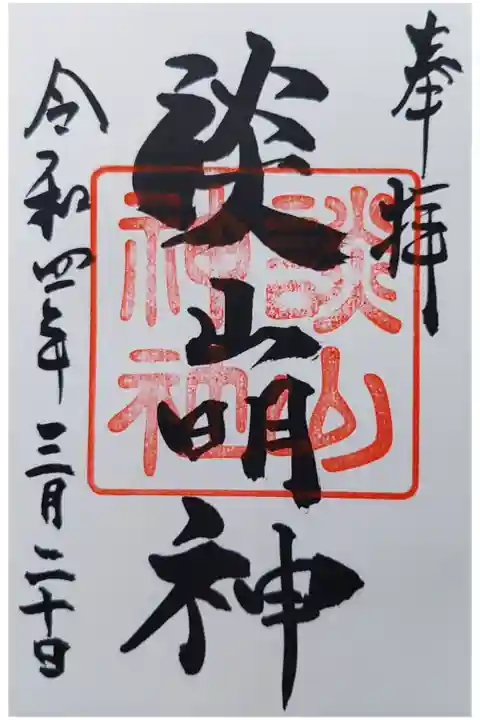 奉拝
談山明神
談山
神社
令和四年三月二十日